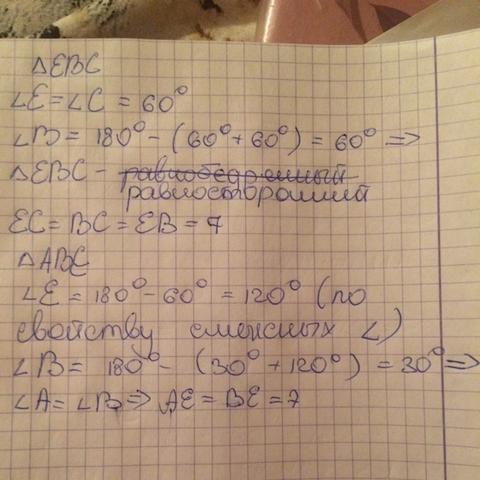 △EBC
∠E = ∠C = 60°
∠B = 180° - (60° + 60°) = 60° =>
△EBC - равнобедренный
равносторонний
EC = BC = EB = 7
△ABE
∠E = 180° - 60° = 120° (по
свойству смежных ∠)
∠B = 180° - (30° + 120°) = 30° =>
∠A = ∠B => AE = BE = 7